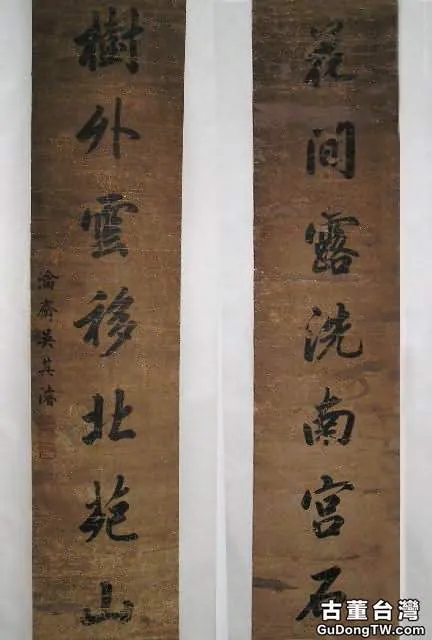 花間露洗南宮石
樹外雲移北苑山
瀹齋吳其濬
古董台灣
GuDongTW.com